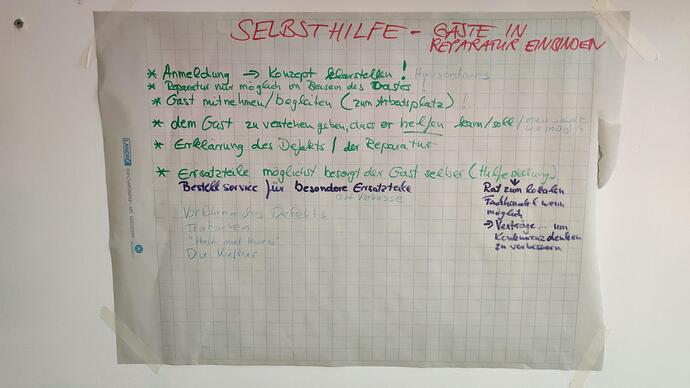 SELBSTHILFE - GÄSTE IN
REPARATUR EINBINDEN
* Anmeldung → Konzept klarstellen! Hausordnung
* Reparatur nur möglich im Beisein des Gastes!
* Gast mitnehmen/begleiten (zum Arbeitsplatz)!
* dem Gast zu verstehen geben, dass er helfen kann/soll/muss soweit
wie möglich
* Erklärung des Defekts / der Reparatur
* Ersatzteile möglichst besorgt der Gast selber (Hilfestellung)
Bestellservice für besondere Ersatzteile
auf Vorkasse
Rat zum lokalen
Fachhandel wenn
möglich
→ Verträge... um
Konkurrenzdenken
zu verbessern
Vorführen des Defekts
"Halt mal kurz"
Du Kultur
LANDRÉ